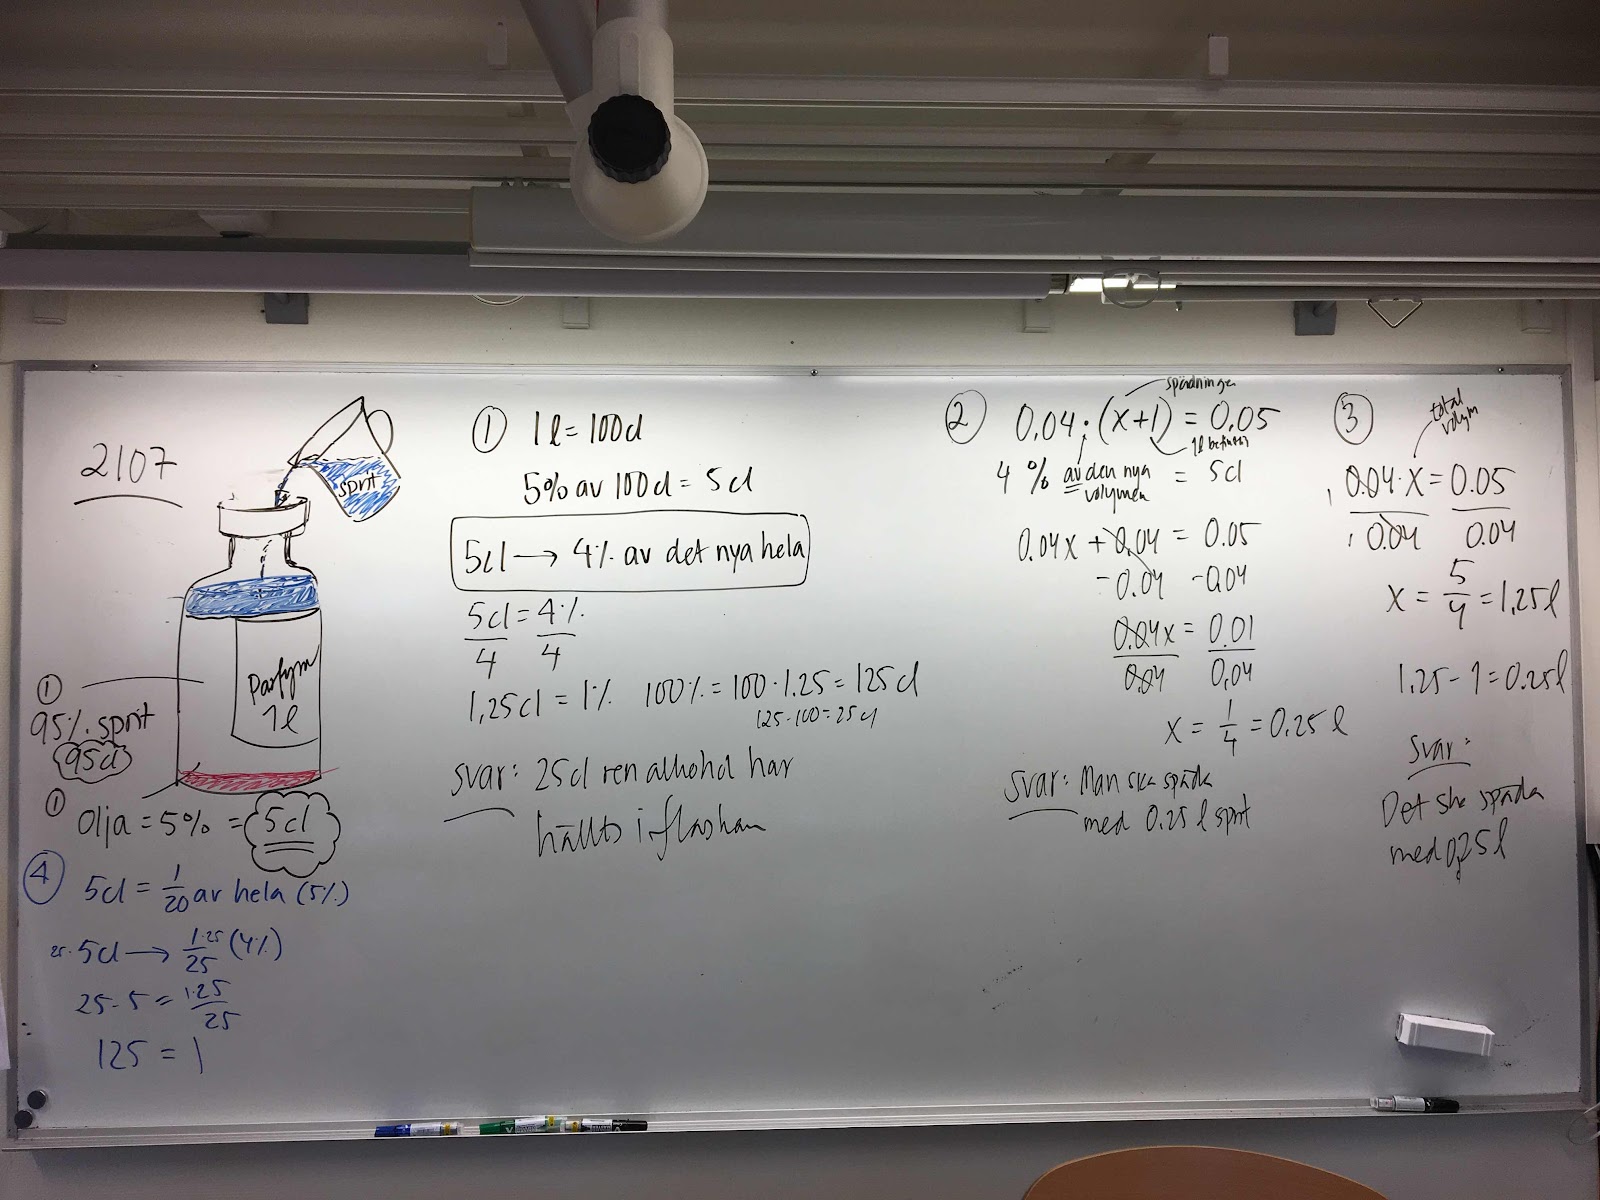 2107
sprit
Parfym
1 l
①
95% sprit
95cl
①
Olja = 5% = 5cl
④
5cl = 1/20 av hela (5%)
25· 5cl → 1·25/25 (4%)
25·5 = 1·25/25
125 = 1
① 1 l = 100cl
5% av 100cl = 5cl
5cl → 4% av det nya hela
5cl/4 = 4%/4
1,25cl = 1% 100% = 100·1.25 = 125cl
125-100=25cl
svar: 25cl ren alkohol har
hällts i flaskan
② spädningen
0,04·(x+1) = 0,05
1l befintli
4% av den nya volymen = 5cl
0.04x + 0,04 = 0.05
-0.04 -0,04
0.04x/0.04 = 0.01/0,04
x = 1/4 = 0,25 l
Svar: Man ska späda
med 0.25 l sprit
③ total
volym
0.04·x/0.04 = 0.05/0.04
x = 5/4 = 1,25l
1.25-1=0.25l
Svar:
Det ska späda
med 0,25 l